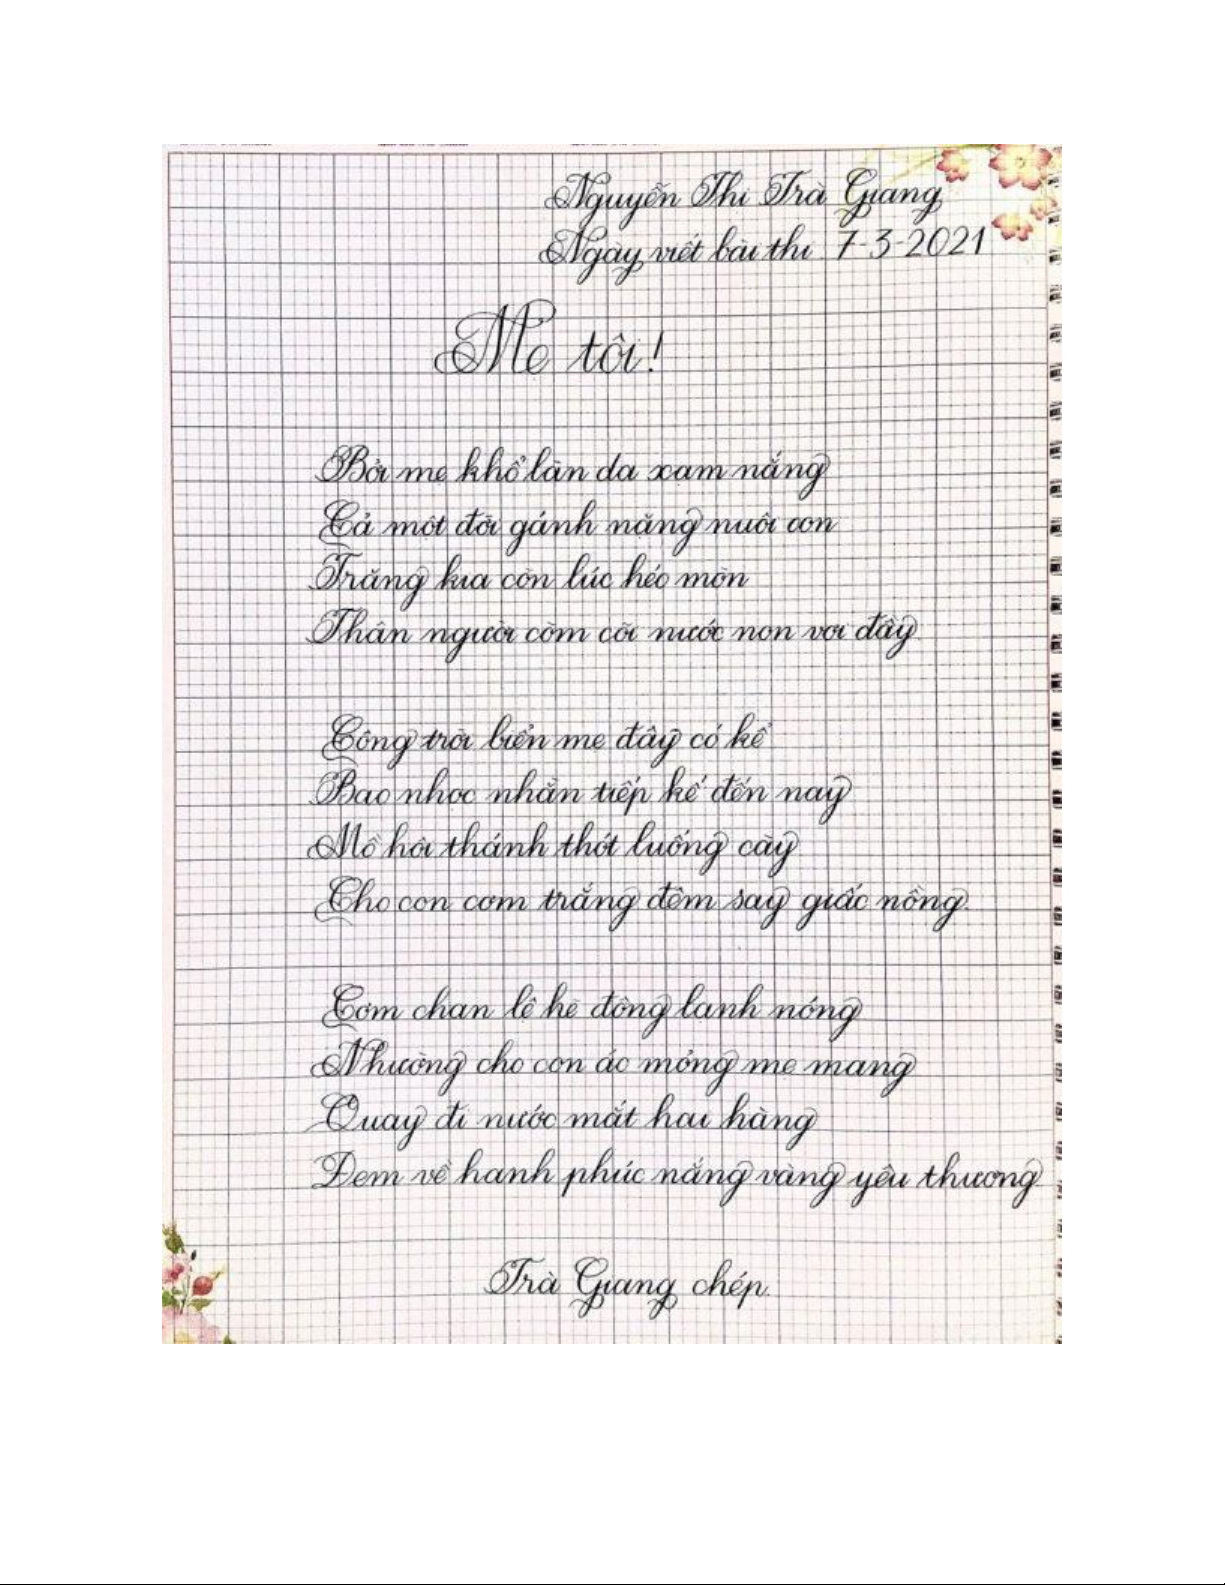 Nguyễn Thị Trà Giang
Ngày viết bài thi 7-3-2021
Mẹ tôi!
Bởi mẹ khổ làn da xạm nắng
Cả một đời gánh nặng nuôi con
Trăng kia còn lúc héo mòn
Thân người còm cõi nước non vơi đầy
Công trời biển mẹ đây có kể
Bao nhọc nhằn tiếp kế đến nay
Mồ hôi thánh thót luống cày
Cho con cơm trắng đêm say giấc nồng.
Cơm chan lệ hè đông lạnh nóng
Nhường cho con áo mỏng mẹ mang
Quay đi nước mắt hai hàng
Đem về hạnh phúc nắng vàng yêu thương
Trà Giang chép.